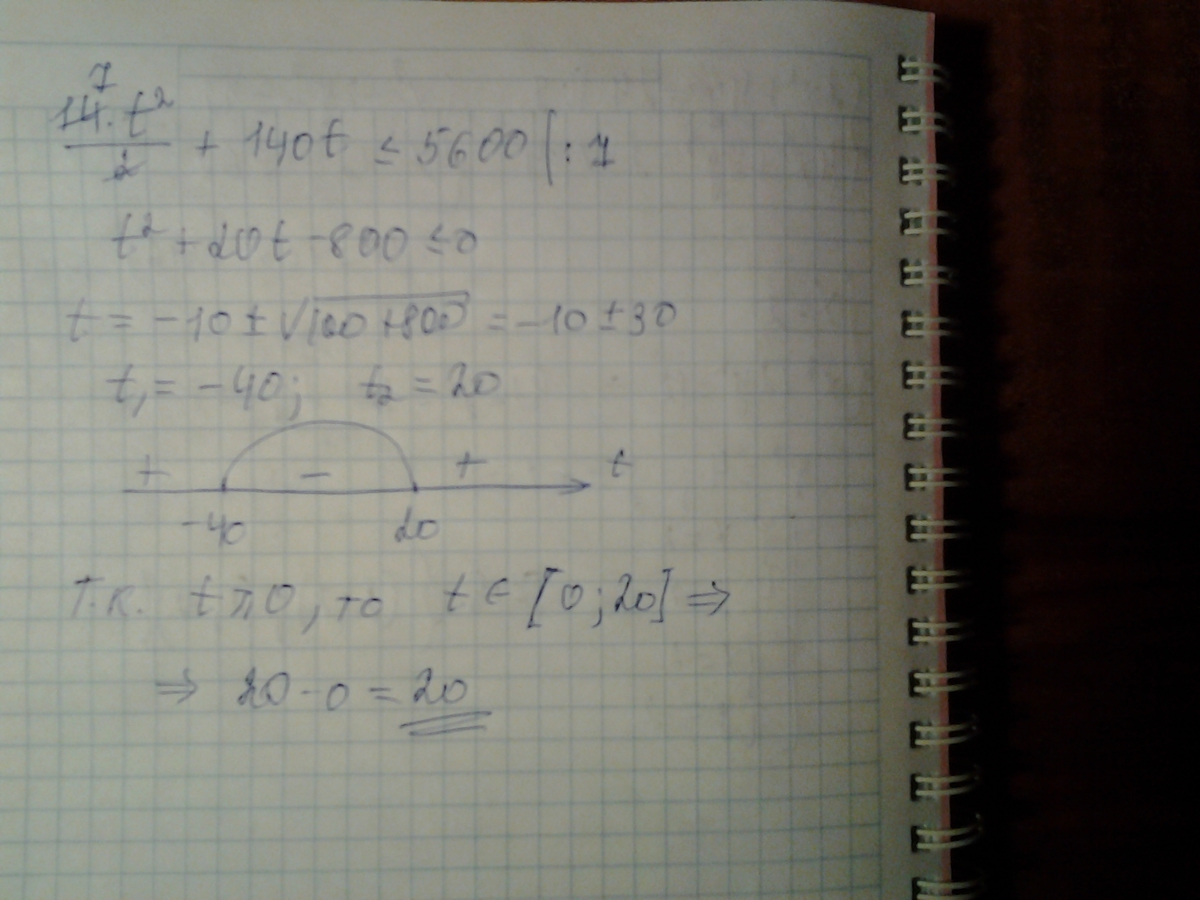 7
14·t²/2 + 140t ≤ 5600 |: 7
t² + 20t - 800 ≤ 0
t = -10 ± √100 + 800 = -10 ± 30
t₁ = -40; t₂ = 20
+ - + t
-40 20
Т.к. t ≥ 0, то t ∈ [0; 20] ⇒
⇒ 20 - 0 = 20